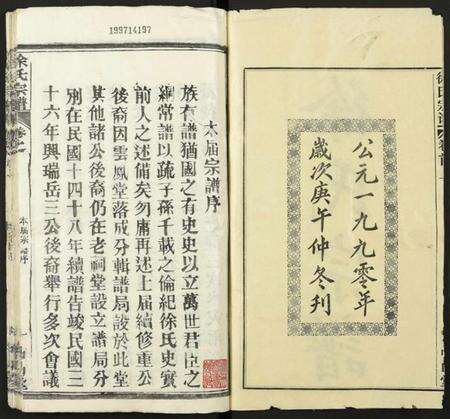 199714197
徐氏宗譜 卷首
公元一九九零年
歲次庚午仲冬刊
本届宗譜序
族有譜猶國之有史史以立萬世君臣之
綱常譜以疏子孫千載之倫紀徐氏史實
前人之述備矣勿庸再述上届續修重公
後裔因雲鳳堂落成分輯譜局設於此堂
其他諸公後裔仍在老祠堂設立譜局分
別在民國十四十八年續譜告竣民國三
十六年興瑞岳三公後裔舉行多次會議
徐氏宗譜 卷之
本届宗譜序